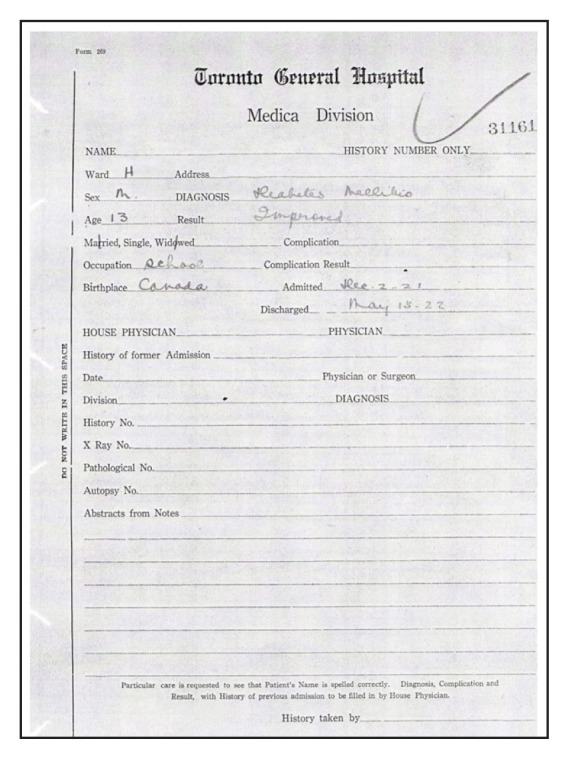 Form 269
Toronto General Hospital
Medica Division
31161
NAME HISTORY NUMBER ONLY
Ward H Address
Sex M. DIAGNOSIS Diabetes Mellitus
Age 13 Result Improved
Married, Single, Widowed Complication
Occupation School Complication Result
Birthplace Canada Admitted Dec. 2 - 21
Discharged May 15 - 22
HOUSE PHYSICIAN PHYSICIAN
History of former Admission
Date Physician or Surgeon
Division DIAGNOSIS
History No.
X Ray No.
Pathological No.
Autopsy No.
Abstracts from Notes
DO NOT WRITE IN THIS SPACE
Particular care is requested to see that Patient's Name is spelled correctly. Diagnosis, Complication and
Result, with History of previous admission to be filled in by House Physician.
History taken by